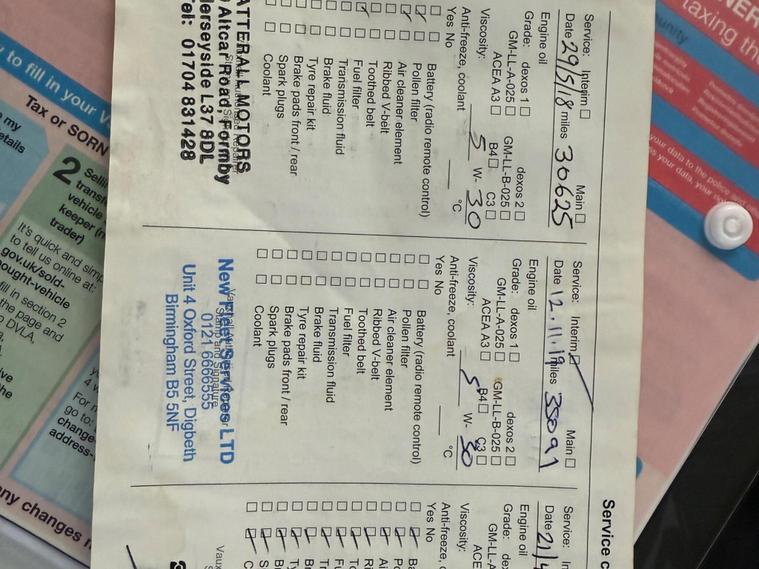 Service: Interim ☐ Main ☐
Date 29/5/18 miles 30625
Engine oil
Grade: dexos 1 ☐ dexos 2 ☐
GM-LL-A-025 ☐ GM-LL-B-025 ☐
ACEA A3 ☐ B4 ☐ C3 ☐
Viscosity: 5 W- 30
Anti-freeze, coolant °C
Yes No
Battery (radio remote control)
Pollen filter
Air cleaner element
Ribbed V-belt
Toothed belt
Fuel filter
Transmission fluid
Brake fluid
Tyre repair kit
Brake pads front / rear
Spark plugs
Coolant
ATTERALL MOTORS
Altcar Road, Formby
erseyside L37 8DL
el: 01704 831428
Service: Interim ☑ Main ☐
Date 12.11.19 miles 35091
Engine oil
Grade: dexos 1 ☐ dexos 2 ☐
GM-LL-A-025 ☐ GM-LL-B-025 ☐
ACEA A3 ☐ B4 ☐ C3 ☐
Viscosity: 5 W- 30
Anti-freeze, coolant °C
Yes No
Battery (radio remote control)
Pollen filter
Air cleaner element
Ribbed V-belt
Toothed belt
Fuel filter
Transmission fluid
Brake fluid
Tyre repair kit
Brake pads front / rear
Spark plugs
Coolant
New Fleet Services LTD
0121 6666555
Unit 4 Oxford Street, Digbeth
Birmingham B5 5NF
Service c
Service: In
Date 21/4
Engine oil
Grade: de
GM-L
ACE
Viscosity:
Anti-freeze, c
Yes No
Ba
Po
Ai
Ri
To
Fu
Tr
Br
Ty
B
S
C
Vaux
to fill in your V
Tax or SORN
my
etails
2 Selli
transf
vehicle
keeper (n
trader)
It's quick and simp
to tell us online at:
gov.uk/sold-
ought-vehicle
fill in section 2
the page and
DVLA,
For n
go to:
change-
address-
any changes
taxing th
your data to the police and